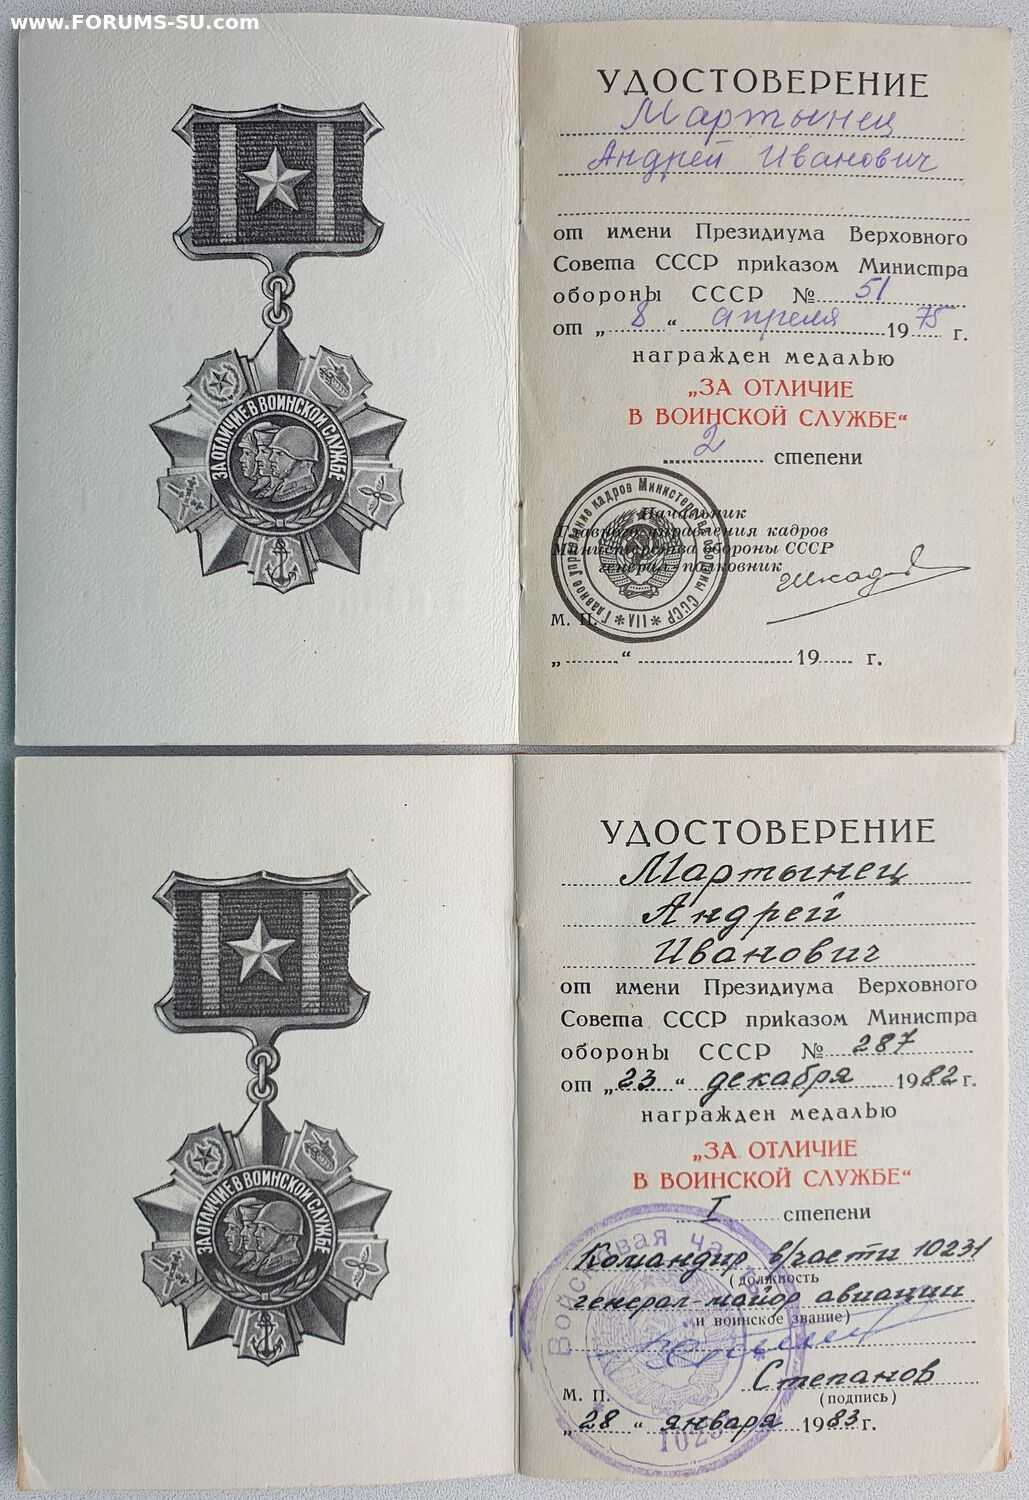 www.FORUMS-SU.com
ЗА ОТЛИЧИЕ В ВОИНСКОЙ СЛУЖБЕ
УДОСТОВЕРЕНИЕ
Мартынец
Андрей Иванович
от имени Президиума Верховного
Совета СССР приказом Министра
обороны СССР № 51
от „ 8 “ апреля 1975 г.
награжден медалью
„ЗА ОТЛИЧИЕ
В ВОИНСКОЙ СЛУЖБЕ“
2 степени
Начальник
Главного управления кадров
Министерства обороны СССР
генерал-полковник
Главное управление кадров Министерства обороны СССР * VII *
М. П.
„ “ 19 г.
ЗА ОТЛИЧИЕ В ВОИНСКОЙ СЛУЖБЕ
УДОСТОВЕРЕНИЕ
Мартынец
Андрей
Иванович
от имени Президиума Верховного
Совета СССР приказом Министра
обороны СССР № 287
от „23 “ декабря 1982 г.
награжден медалью
„ЗА ОТЛИЧИЕ
В ВОИНСКОЙ СЛУЖБЕ“
I степени
Командир в/части 10231
(должность
генерал-майор авиации
и воинское звание)
Степанов
М. П. (подпись)
„28 “ января 1983 г.
Войсковая часть